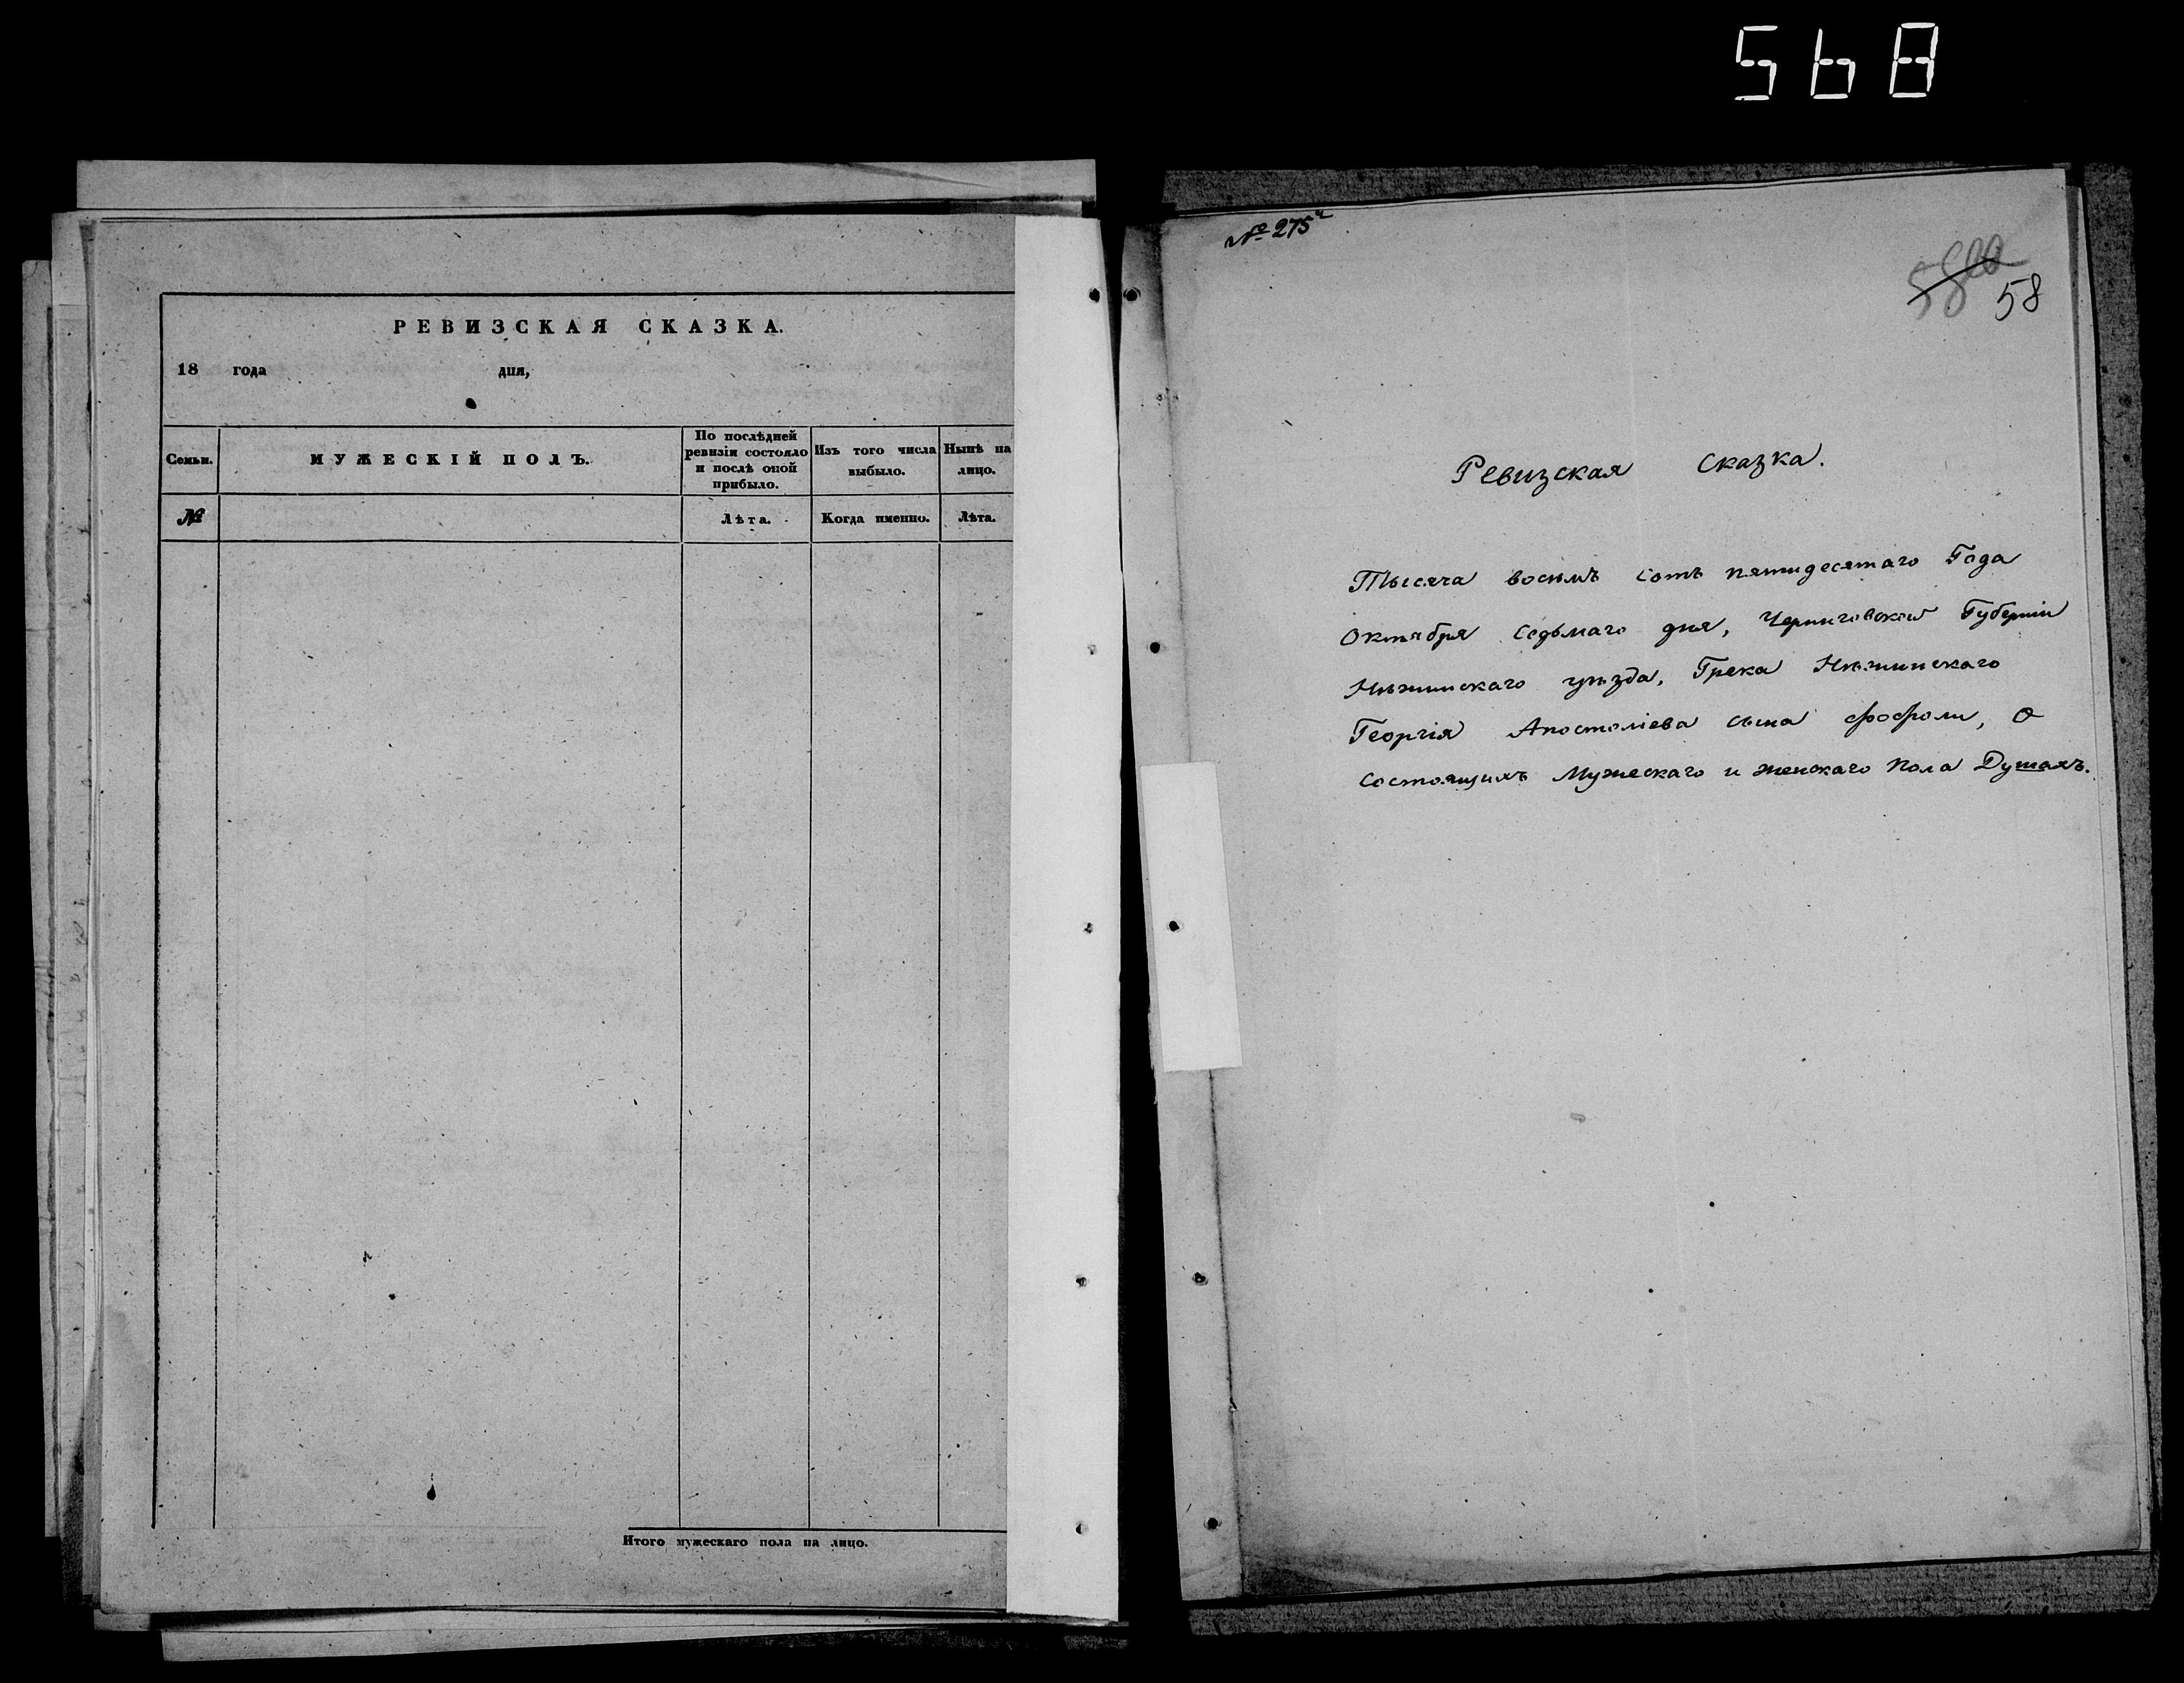 568
РЕВИЗСКАЯ СКАЗКА.
18 года дня,
Семьи.
МУЖЕСКІЙ ПОЛЪ.
По послѣдней
ревизіи состояло
и послѣ оной
прибыло.
Изъ того числа
выбыло.
Нынѣ на
лицо.
№
Лѣта.
Когда именно.
Лѣта.
Итого мужескаго пола на лицо.
№ 275
58
Ревизская Сказка.
Тысяча восемъ сотъ пятидесятаго Года
Октября седьмаго дня, Черниговской Губерніи
Нѣжинскаго уѣзда, Грека Нѣжинскаго
Георгія Апостоліева сына о
состоящихъ Мужескаго и женскаго пола Душахъ.